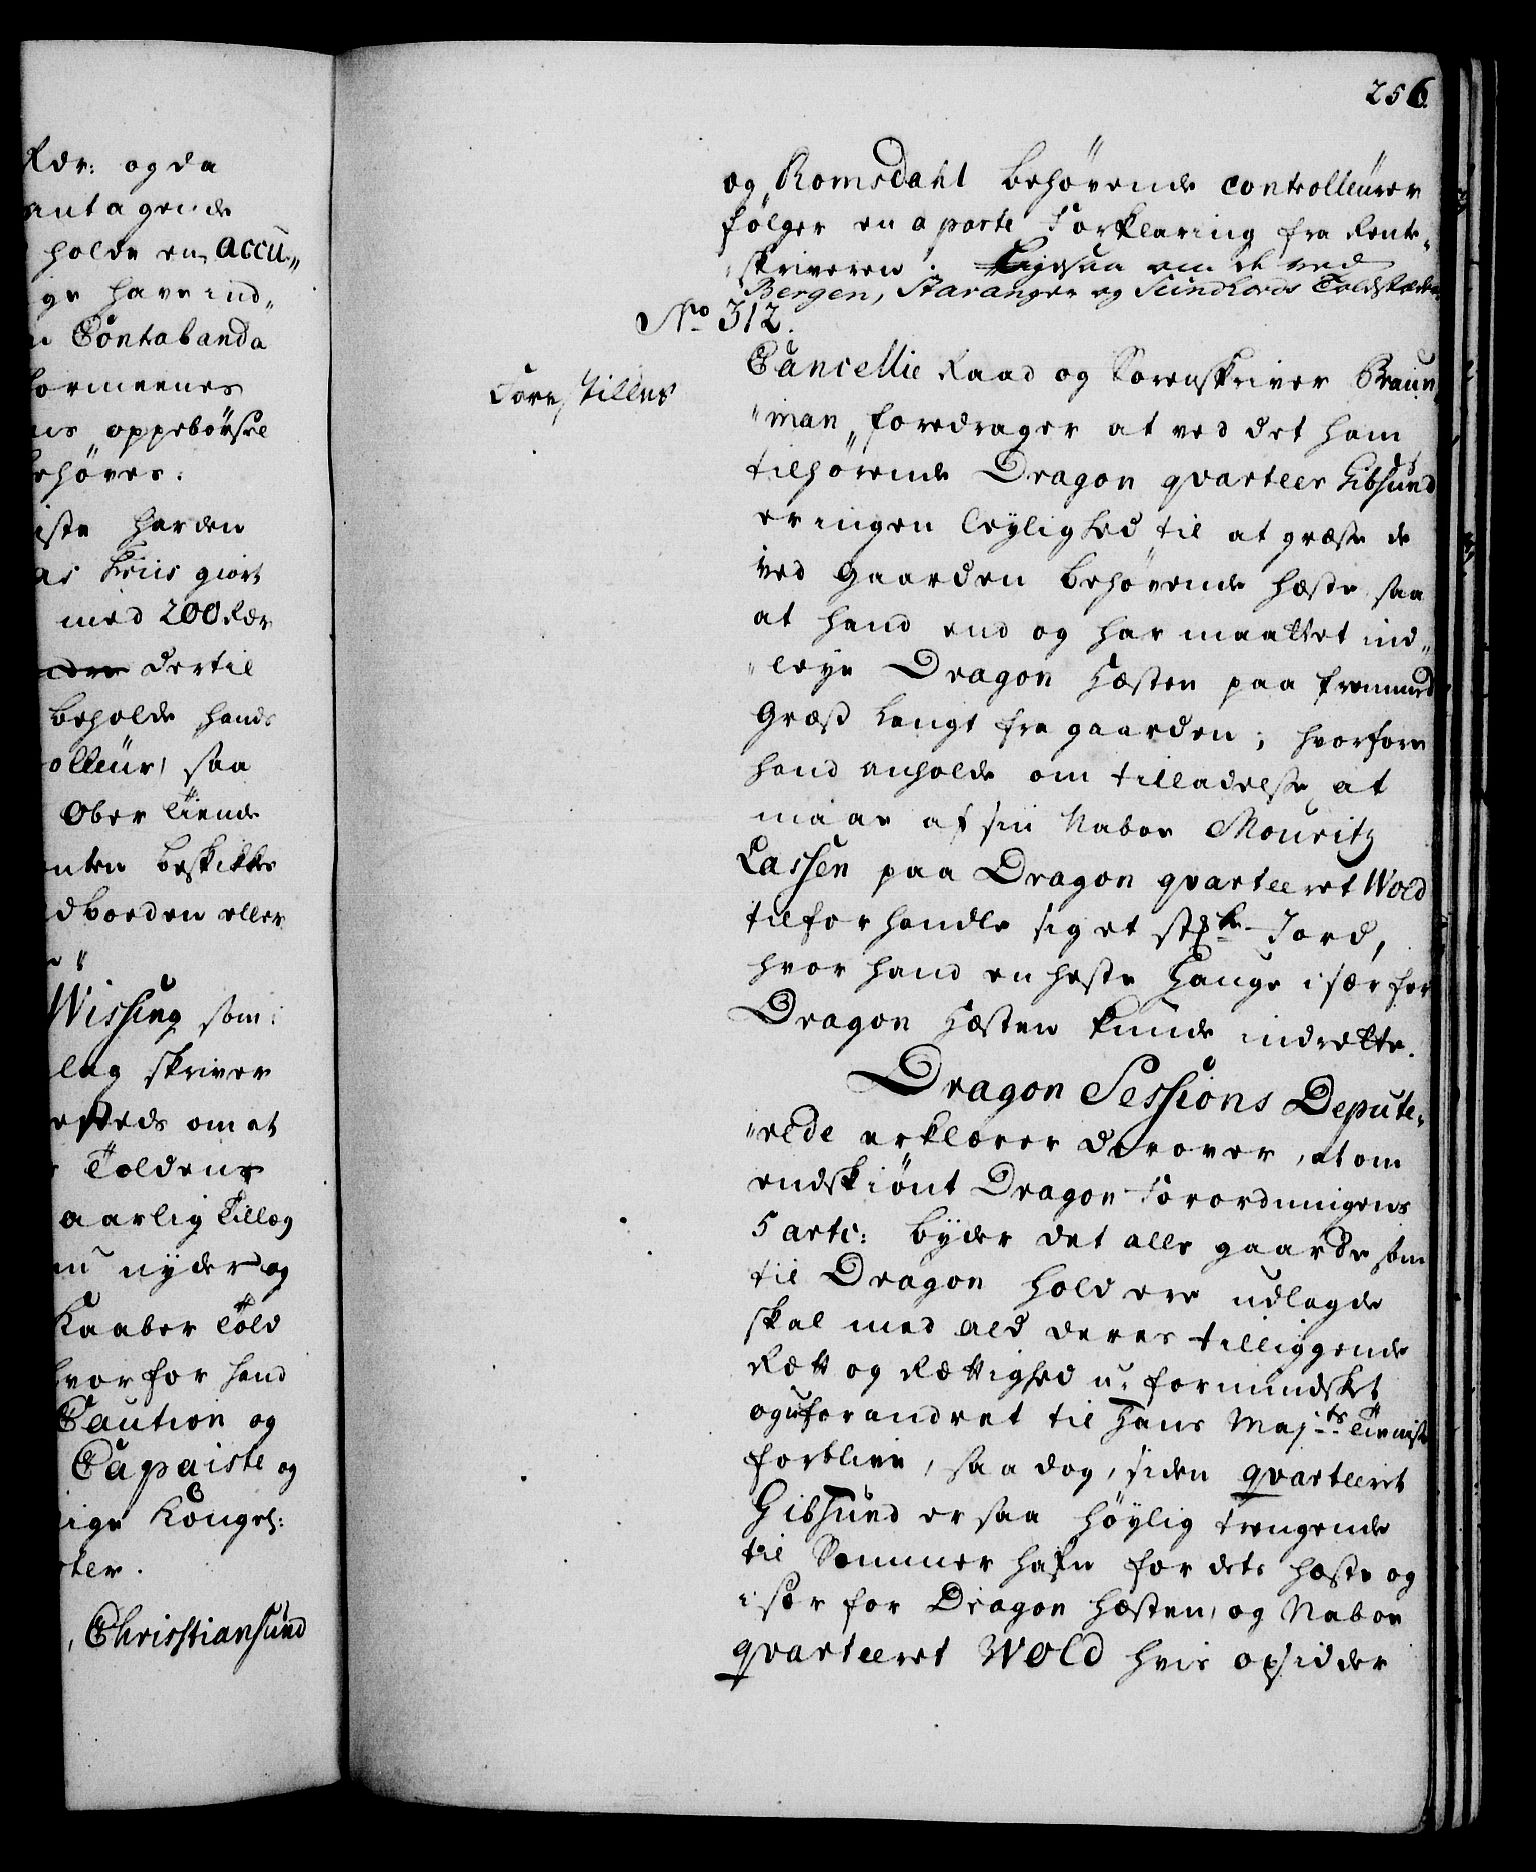 Rdr: og da
antagende
holde en accu„
ge have ind„
Contabanda
formeenes
oppebörsel
ehöves:
iste Harden
giort
med 200 Rdr
dertil
beholde hands
olleur, saa
Ober Tiende
nten beskikkes
dboeden eller
Wissing som:
lag skriver
steds om at
Toldens
aarlig Tillæg
nyder og
Kaaber Told
hvorfor hand
Caution og
Capaiste og
ige Kongel:
ter.
, Christiansund
256
og Romsdahl behövende controlleurer
følger en a parte Forklaring fra Rente„
„skriveren. Ligesaa om de ved
Bergen, Stavanger og Sundhords Toldstæder
No 312.
Forestilles
Cancellie Raad og Sorenskriver Braun„
„man, foredrager at ved det ham
tilhørende Dragon qvarteer Gibsund
er ingen leylighed til at græsse de
ved gaarden behövende hæste, saa
at hand end og har maattet ind„
„leye Dragon Hæsten paa fremmed
Græss langt fra gaarden; hvorfore
hand anholde om tilladelse at
maae af sin Naboe Mouritz
Lassen paa Dragon qvarteeret Wold
tilforhandle sig et stk. Jord,
hvor hand en heste Hauge i sær for
Dragon Hæsten kunde indrette.
Dragon Sessions Depute„
„rede erklærer derover, at om
endskiönt Dragon Forordningens
5 artc: byder det alle gaarde som
til Dragon hold ere udlagde
skal med ald deres tilliggende
Rætt og Rættighed u-formindsket
og uforandret til Hans Majts Tieniste
forblive, saa dog, siden qvarteeret
Gibsund er saa höylig trengende
til Sommer hafn for dets hæste og
i sær for Dragon Hæsten, og Naboe
qvarteeret Wold hvis opsidder